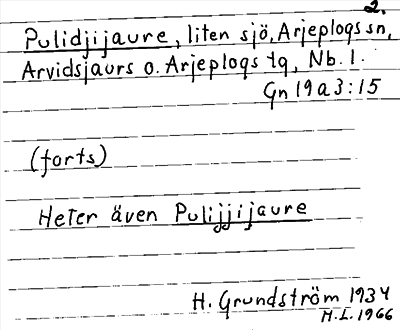 2.
Pulidjijaure, liten sjö, Arjeplogs sn,
Arvidsjaurs o. Arjeplogs tg, Nb. l.
Gn 19a3:15
(forts)
Heter även Pulijjijaure
H. Grundström 1934
H.L. 1966